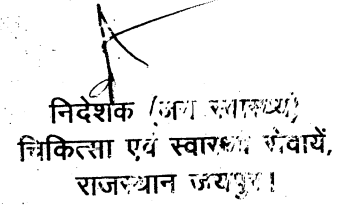 निदेशक (जन स्वास्थ्य)
चिकित्सा एवं स्वास्थ्य सेवायें,
राजस्थान जयपुर।